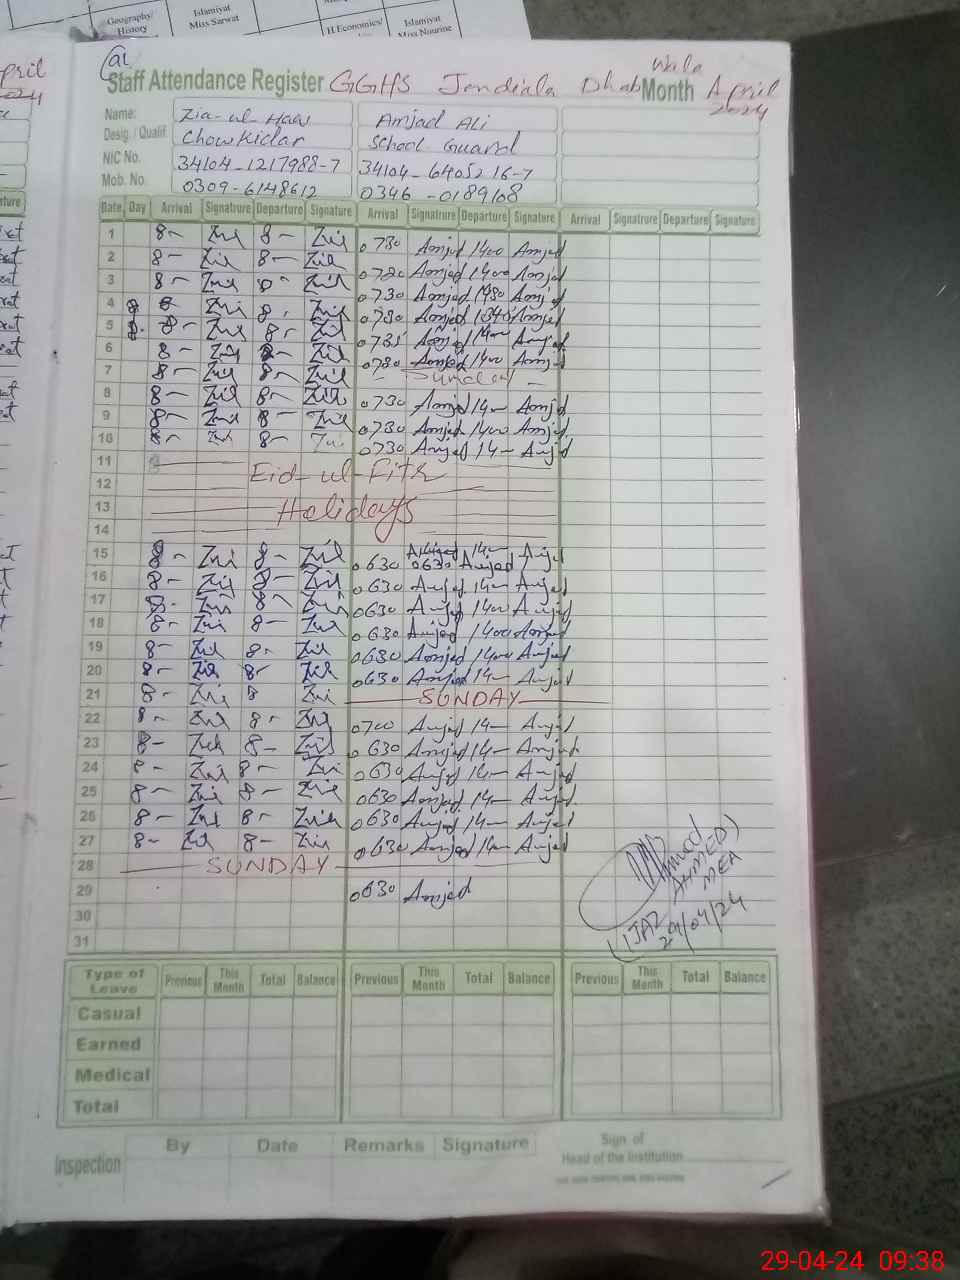 Geography/
History
Islamiyat
Miss Sarwat
H.Economics/
Islamiyat
Miss Nourine
pril
2024
Staff Attendance Register GGHS Jandiala Dhab Wala Month April
2024
Name: Zia-ul-Haq Amjad Ali
Desig. / Qualif Chowkidar School Guard
NIC No. 34104-1217988-7 34104-6405216-7
Mob. No. 0309-6148612 0346-0189168
Date Day Arrival Signatrure Departure Signature Arrival Signatrure Departure Signature Arrival Signatrure Departure Signature
1 8- Zia 8- Zia 0730 Amjad 1400 Amjad
2 8- Zia 8- Zia 0720 Amjad 1400 Amjad
3 8- Zia 8- Zia 0730 Amjad 1430 Amjad
4 8- Zia 8- Zia 0730 Amjad 1340 Amjad
5 8- Zia 8- Zia 0735 Amjad 1400 Amjad
6 8- Zia 8- Zia 0720 Amjad 1400 Amjad
7 8- Zia 8- Zia - Sunday -
8 8- Zia 8- Zia 0730 Amjad 14- Amjad
9 8- Zia 8- Zia 0730 Amjad 1400 Amjad
10 8- Zia 8- Zia 0730 Amjad 14- Amjad
11 Eid-ul-Fitr
12
13 Holidays
14
15 8- Zia 8- Zia 0630 Amjad 14- Amjad
16 8- Zia 8- Zia 0630 Amjad 14- Amjad
17 8- Zia 8- Zia 0630 Amjad 1400 Amjad
18 8- Zia 8- Zia 0630 Amjad 1400 Amjad
19 8- Zia 8- Zia 0630 Amjad 1400 Amjad
20 8- Zia 8- Zia 0630 Amjad 14- Amjad
21 8- Zia 8 Zia SUNDAY
22 8- Zia 8- Zia 0700 Amjad 14- Amjad
23 8- Zia 8- Zia 0630 Amjad 14- Amjad
24 8- Zia 8- Zia 0630 Amjad 14- Amjad
25 8- Zia 8- Zia 0630 Amjad 14- Amjad
26 8- Zia 8- Zia 0630 Amjad 14- Amjad
27 8- Zia 8- Zia 0630 Amjad 14- Amjad
28 SUNDAY
29 0630 Amjad
30
31
(IJAZ AHMED)
MEA
29/04/24
Type of Leave Previous This Month Total Balance Previous This Month Total Balance Previous This Month Total Balance
Casual
Earned
Medical
Total
Inspection By Date Remarks Signature
Sign of
Head of the Institution
29-04-24 09:38